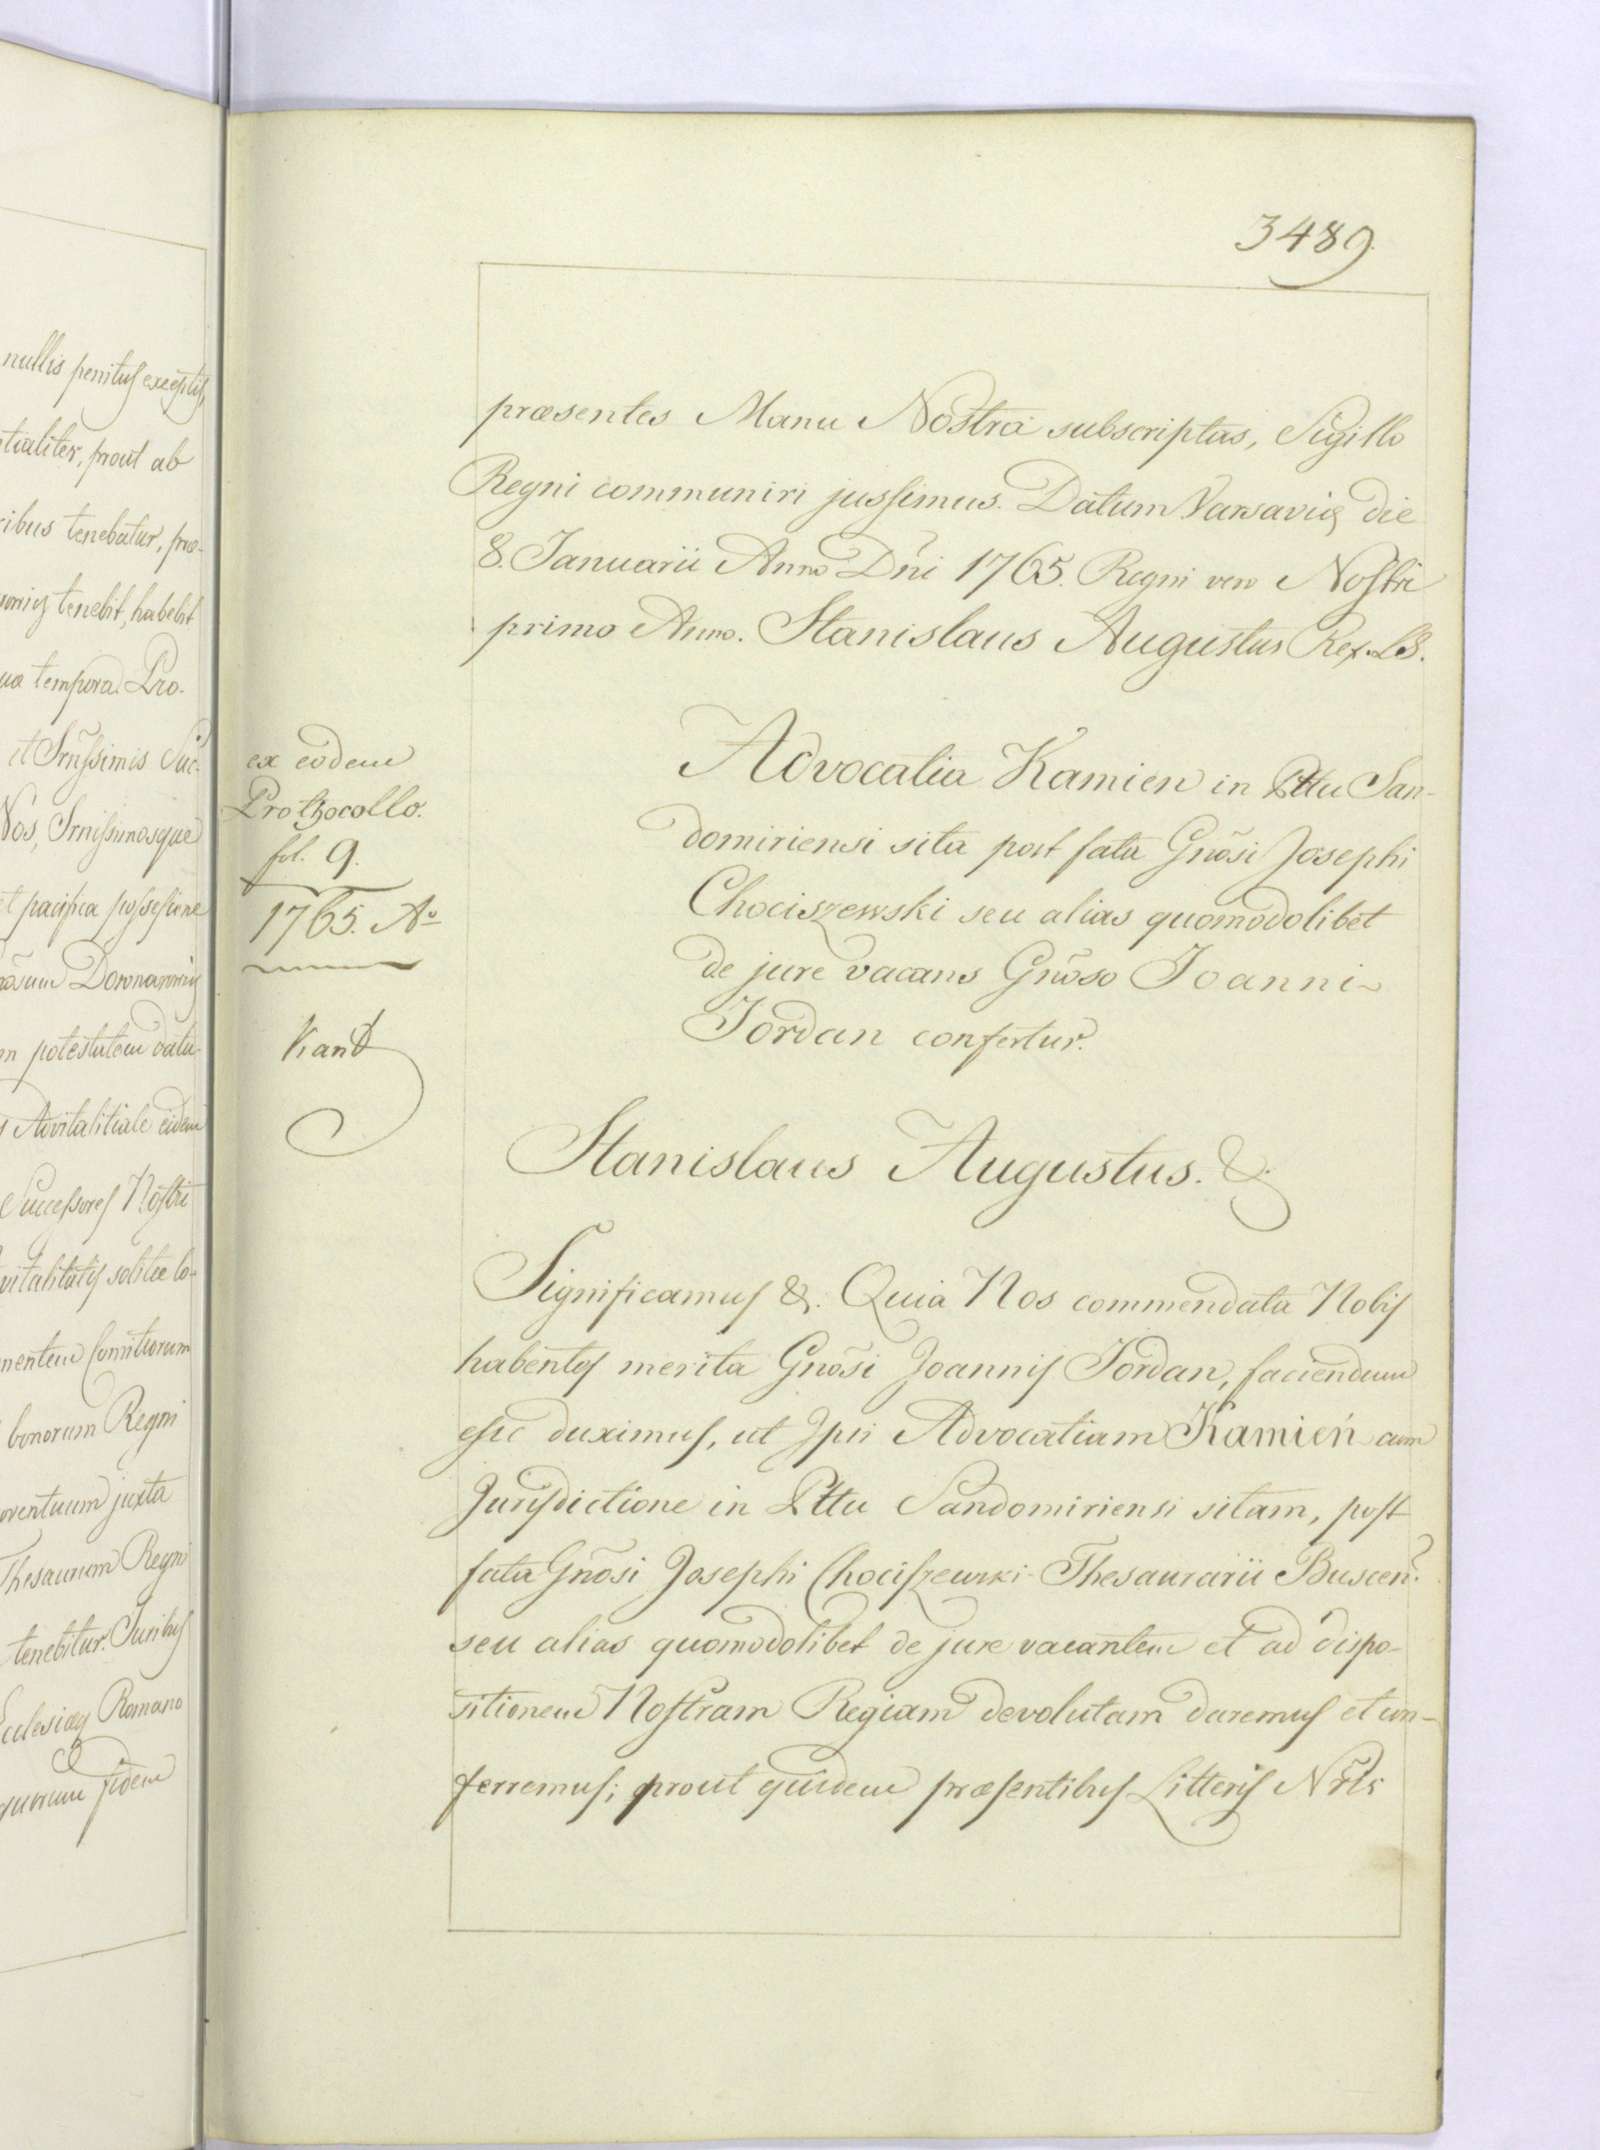 nullis penitus exceptis,
tialiter, prout ab
ribus tenebatur, præ-
tenebit, habebit
tempora. Pro-
et Srnissimis Suc-
Nos, Srnissimosque
et pacifica possessione
potestatem
Advitalitiale eidem
Successores Nostri
vitalitatis solitæ lo-
mentem Comitiorum
bonorum Regni
proventuum juxta
Thesaurum Regni
tenebitur. Juribus
Ecclesiæ Romano
quorum fidem
3489.
præsentes Manu Nostra subscriptas, Sigillo
Regni communiri jussimus. Datum Varsaviæ die
8. Januarii Anno Dñi 1765. Regni vero Nostri
primo Anno. Stanislaus Augustus Rex. LS.
ex eodem
Prothocollo.
fol. 9.
1765. Aº
Kand
Advocatia Kamien in Pttu San-
domiriensi sita post fata Gnõsi Josephi
Chociszewski seu alias quomodolibet
de jure vacans Gnõso Joanni
Jordan confertur.
Stanislaus Augustus. &.
Significamus &. Quia Nos commendata Nobis
habentes merita Gnõsi Joannis Jordan, faciendum
esse duximus, ut Ipsi Advocatiam Kamień cum
Jurisdictione in Pttu Sandomiriensi sitam, post
fata Gnõsi Josephi Chociszewski Thesaurarii Buscen̄.
seu alias quomodolibet de jure vacantem et ad dispo-
sitionem Nostram Regiam devolutam daremus et con-
ferremus; prout quidem præsentibus Litteris Nris